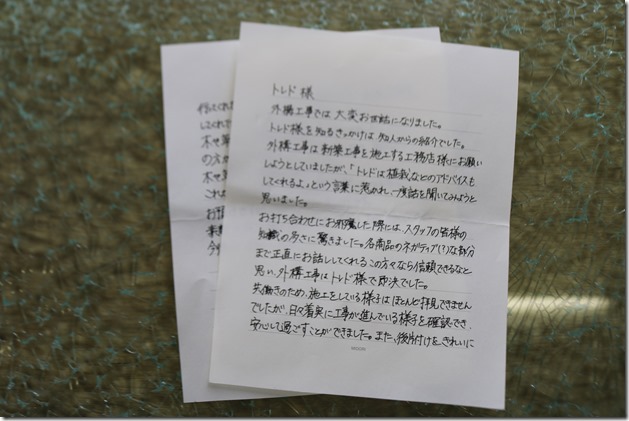 トレド様
外構工事では大変お世話になりました。
トレド様を知るきっかけは、知人からの紹介でした。
外構工事は新築工事を施工する工務店様にお願い
しようとしていましたが、「トレドは植栽などのアドバイスも
してくれるよ。」という言葉に惹かれ、一度話を聞いてみようと
思いました。
お打ち合わせにお邪魔した際には、スタッフの皆様の
知識の多さに驚きました。各商品のネガティブ(?)な部分
まで正直にお話ししてくれるこの方々なら信頼できるなと
思い、外構工事はトレド様で即決でした。
共働きのため、施工をしている様子はほとんど拝見できません
でしたが、日々着実に工事が進んでいる様子を確認でき、
安心して過ごすことができました。また、後片付けを、きれいに
してくれ
木や草
の方が
木や草
これ
お世